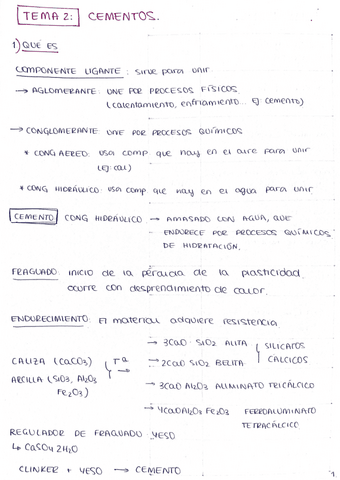 TEMA 2: CEMENTOS.
1) QUÉ ES
COMPONENTE LIGANTE: sirve para unir.
→ AGLOMERANTE: UNE POR PROCESOS FÍSICOS.
(calentamiento, enfriamiento... Ej: cemento)
→ CONGLOMERANTE: UNE POR PROCESOS QUÍMICOS
* CONG AEREO: usa comp. que hay en el aire para unir
(Ej: cal)
* CONG HIDRÁULICO: usa comp que hay en el agua para unir
CEMENTO CONG HIDRÁULICO → AMASADO CON AGUA, QUE
ENDURECE POR PROCESOS QUÍMICOS
DE HIDRATACIÓN.
FRAGUADO: inicio de la pérdida de la plasticidad.
ocurre con desprendimiento de calor.
ENDURECIMIENTO: El material adquiere resistencia.
→ 3CaO · SiO2 ALITA
SILICATOS
CALIZA (CaCO3) Tª → 2CaO SiO2 BELITA
CALCICOS
ARCILLA (SiO3, Al2O3
→ 3CaO Al2O3 ALIMINATO TRICÁLCICO
Fe2O3)
→ 4CaO Al2O3 Fe2O3 FERROALUMINATO
TETRACÁLCICO
REGULADOR DE FRAGUADO: YESO
↳ CaSO4 2H2O
CLINKER + YESO → CEMENTO
1.